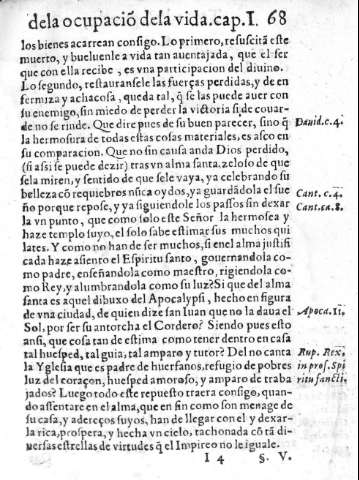 dela ocupaciõ dela vida.cap.I. 68
los bienes acarrean consigo. Lo primero, resuscitã este
muerto, y bueluenle a vida tan auentajada, que el ser
que con ella recibe, es vna participacion del diuino.
Lo segundo, restauransele las fuerças perdidas, y de en
fermiza y achacosa, queda tal, q̃ se las puede auer con
su enemigo, sin miedo de perder la victoria si de couar-
de no se rinde. Que dire pues de su buen parecer, sino q̃
Dauid.c.4.
la hermosura de todas estas cosas materiales, es asco en
su comparacion. Que no sin causa anda Dios perdido,
(si assi se puede dezir) tras vn alma santa. zeloso de que
sela miren, y sentido de que sele vaya, ya celebrando su
belleza cõ requiebros nũca oydos, ya guardãdola el sue
Cant.c.4.
ño porque repose, y ya siguiendole los passos sin dexar
Cant.ca.8.
la vn punto, que como solo este Señor la hermosea y
haze templo suyo, el solo sabe estimar sus muchos qui
lates. Y como no han de ser muchos, si en el alma justifi
cada haze asiento el Espiritu santo, gouernandola co-
mo padre, enseñandola como maestro, rigiendola co-
mo Rey, y alumbrandola como su luz? Si que del alma
santa es aquel dibuxo del Apocalypsi, hecho en figura
de vna ciudad, de quien dize san Iuan que no la daua el
Apoca.21.
Sol, por ser su antorcha el Cordero? Siendo pues esto
ansi, que cosa tan de estima como tener dentro en casa
tal huesped, tal guia, tal amparo y tutor? Del no canta
Rup. Rex.
la Yglesia que es padre de huerfanos, refugio de pobres
in pros. Spi
luz del coraçon, huesped amoroso, y amparo de traba
ritu sancti.
jados? Luego todo este repuesto traera consigo, quan-
do assentare en el alma, que en fin como son menage de
su casa, y adereços suyos, han de llegar con el y dexar-
la rica, prospera, y hecha vn cielo, tachonada cõ tã di-
uersas estrellas de virtudes q̃ el Impireo no le iguale.
I 4 §. V.